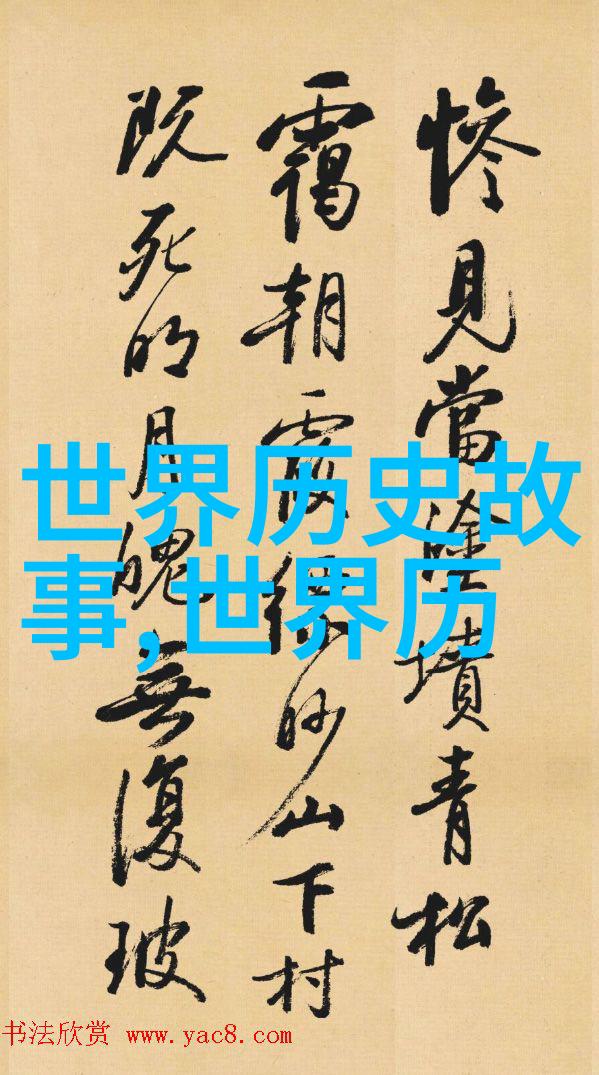 慘見當塗墳青松
靄朝霞縹眇山下村
既死明月魄無復玻
世界历史故
事,世界历
书法欣赏 www.yac8.com